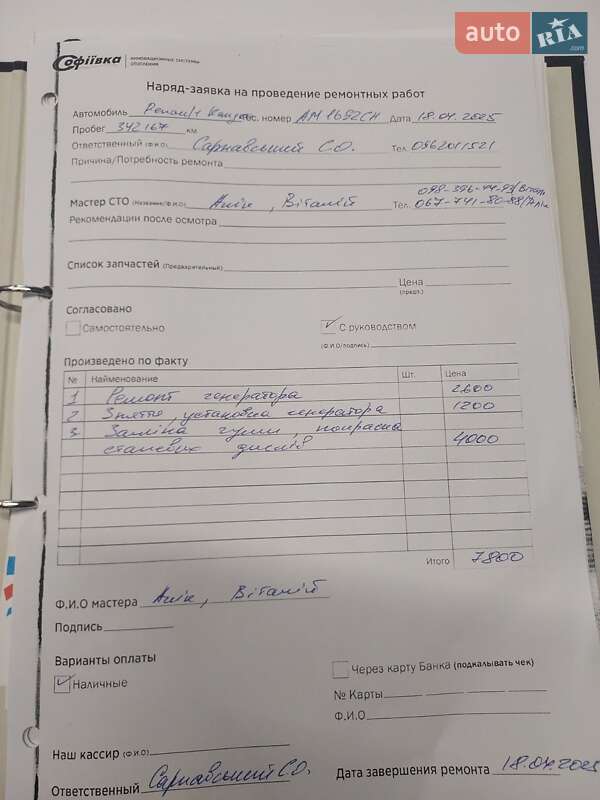 auto RIA .com
Софіївка ИННОВАЦИОННЫЕ СИСТЕМЫ ОТОПЛЕНИЯ
Наряд-заявка на проведение ремонтных работ
Автомобиль Рено/т Кангу гос. номер АМ1692СН Дата 18.04.2025
Пробег 342167 км
Ответственный (Ф.И.О) Сарнавський С.О. Тел 0962011521
Причина/Потребность ремонта
098-396-44-93/Віталій
Мастер СТО (Название/Ф.И.О) Алік, Віталій Тел. 067-741-80-88/Алік
Рекомендации после осмотра
Список запчастей (Предварительный)
Цена (предл.)
Согласовано
Самостоятельно С руководством
(Ф.И.О/подпись)
Произведено по факту
№ Наименование Шт. Цена
1 Ремонт генератора 2600
2 Зняття, установка генератора 1200
3 Заміна гуми, покраска
сталевих дисків 4000
Итого 7800
Ф.И.О мастера Алік, Віталій
Подпись
Варианты оплаты
Через карту Банка (подкалывать чек)
Наличные
№ Карты
Ф.И.О
Наш кассир (Ф.И.О)
Ответственный Сарнавський С.О. Дата завершения ремонта 18.04.2025